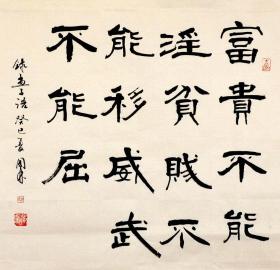 富貴不能
淫貧賤不
能移威武
不能屈
錄孟子語癸巳夏